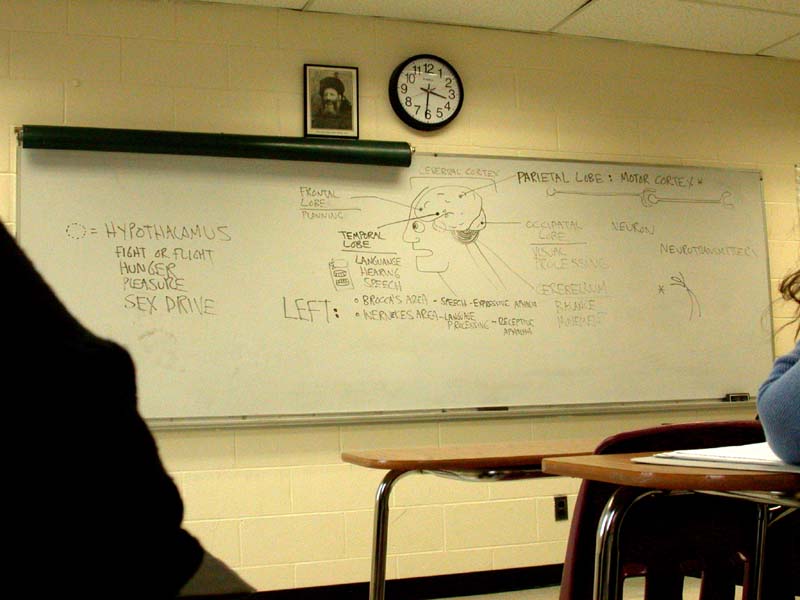 12
1
2
3
4
5
6
7
8
9
10
11
CEREBRAL CORTEX
PARIETAL LOBE: MOTOR CORTEX *
FRONTAL
LOBE
PLANNING
= HYPOTHALAMUS
FIGHT OR FLIGHT
HUNGER
PLEASURE
SEX DRIVE
TEMPORAL
LOBE
LANGUAGE
HEARING
SPEECH
OCCIPATAL
LOBE
VISUAL
PROCESSING
NEURON
NEUROTRANSMITTER
CEREBELLUM
BALANCE
MOVEMENT
*
LEFT:
• BROCA'S AREA - SPEECH - EXPRESSIVE APHASIA
• WERNICKES AREA - LANGUAGE
PROCESSING - RECEPTIVE
APHASIA